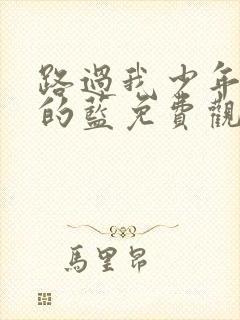 路過我少年
的藍免費觀
馬里昂